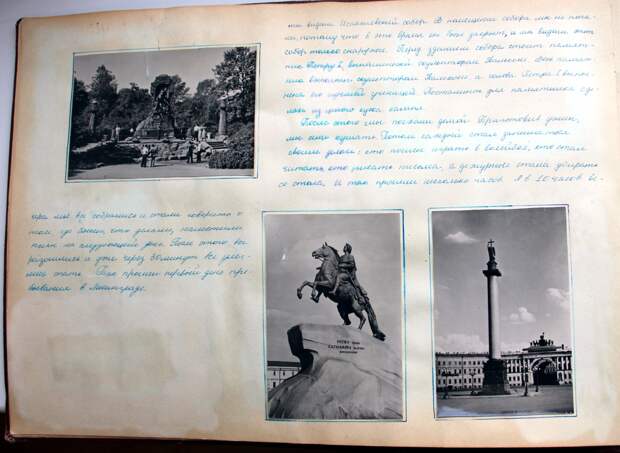 ми видели Исаакиевский собор. В помещении собора мы не
потому что в это время он был закрыт, и мы видели этот
собор только снаружи. Перед зданием собора стоит памят-
ник Петру I, скульптором Фальконе. Сам памят-
ник скульптором Фальконе, а голова Петра I
на его ученицей. Постамент для памятника сде-
лан из одного куска камня.
После этого мы поехали домой. Приготовив ужин,
мы сели кушать. Потом каждый стал заниматься
своими делами: кто пошёл играть в волейбол, кто стал
читать, кто писать письма, а дежурные стали убирать
со стола. И так прошли несколько часов. А в 10 часов ве-
чера мы все собрались и стали говорить о
том, где были, что делали,
план на следующий день. После этого все
разошлись и уже через 30 минут все
спать. Так прошел первый день пре-
бывания в Ленинграде.
PETRO primo
CATHARINA secunda